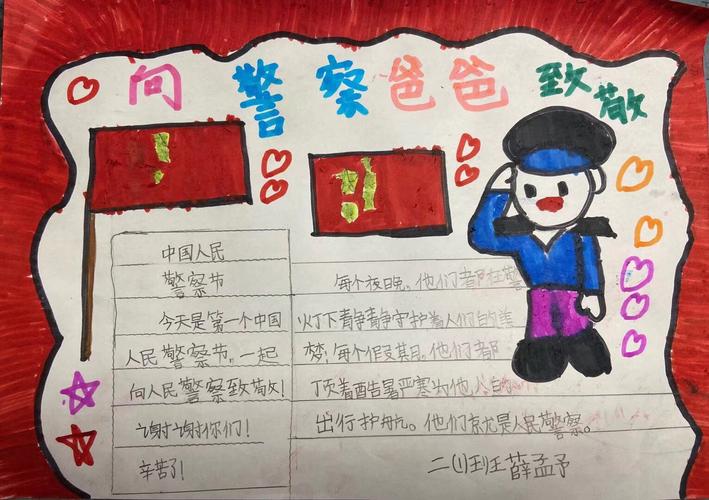 向警察爸爸致敬
中国人民
警察节
今天是第一个中国
人民警察节。一起
向人民警察致敬!
谢谢你们!
辛苦了!
每个夜晚,他们都在警
灯下静静守护着人们的美
梦;每个假期,他们都
顶着酷暑严寒为他人的
出行护航。他们就是人民警察。
二(1)班 薛孟予